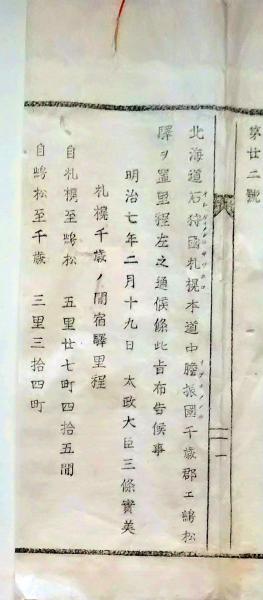 第廿二號
北海道石狩國札幌本道中膽振國千歳郡エ嶋松
驛ヲ置里程左之通候條此旨布告候事
明治七年二月十九日 太政大臣三條實美
札幌千歳ノ間宿驛里程
自札幌至嶋松 五里廿七町四拾五間
自嶋松至千歳 三里三拾四町